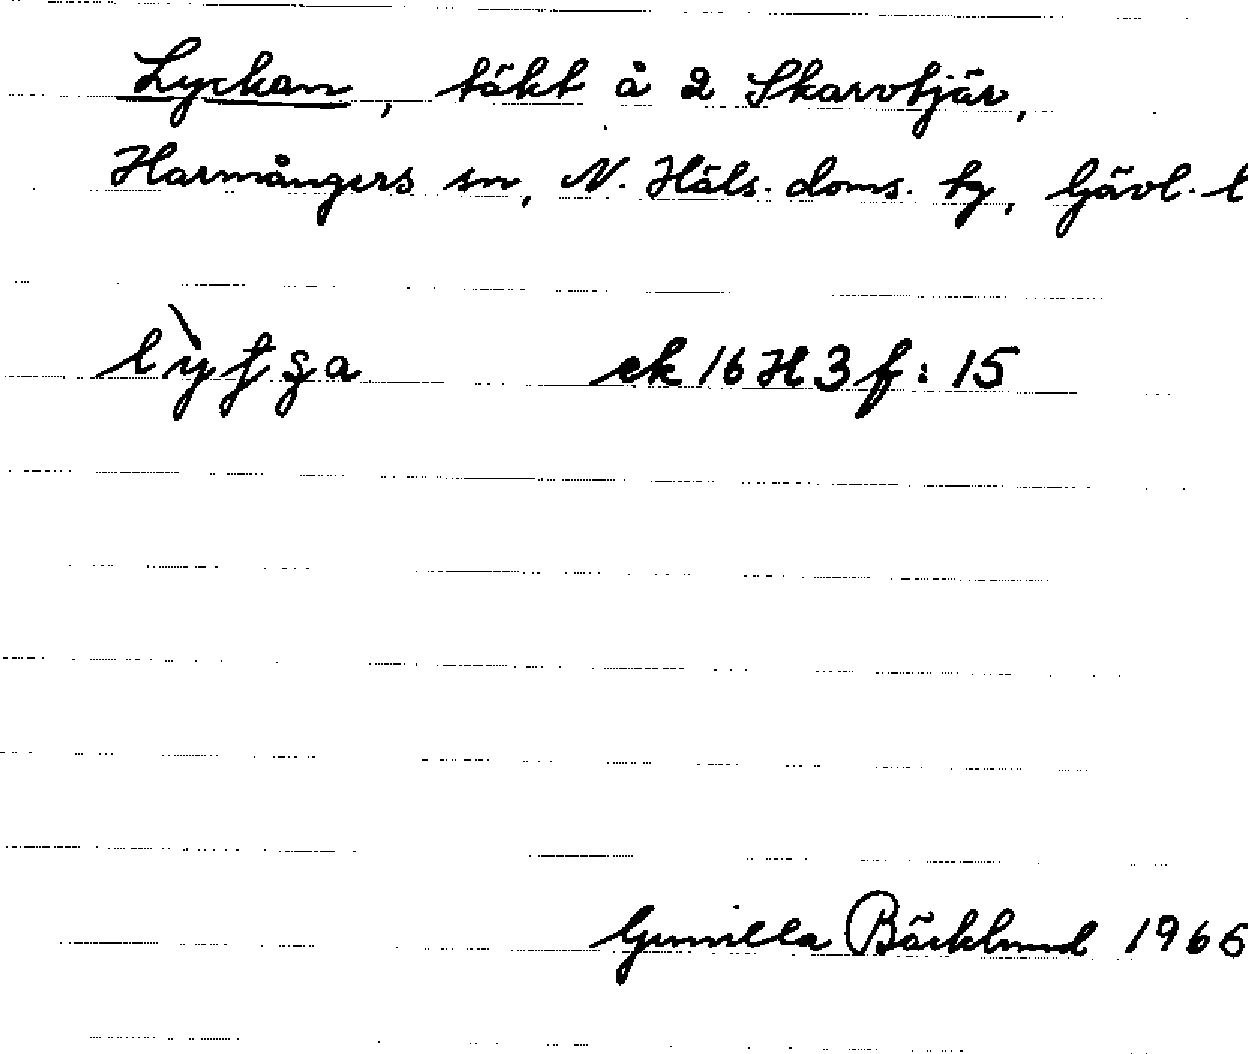 Lyckan, täkt å 2 Skarvtjär,
Harmångers sn, N. Häls. doms. tg, Gävl. l
ek 16 H 3 f : 15
Gunilla Bäcklund 1966